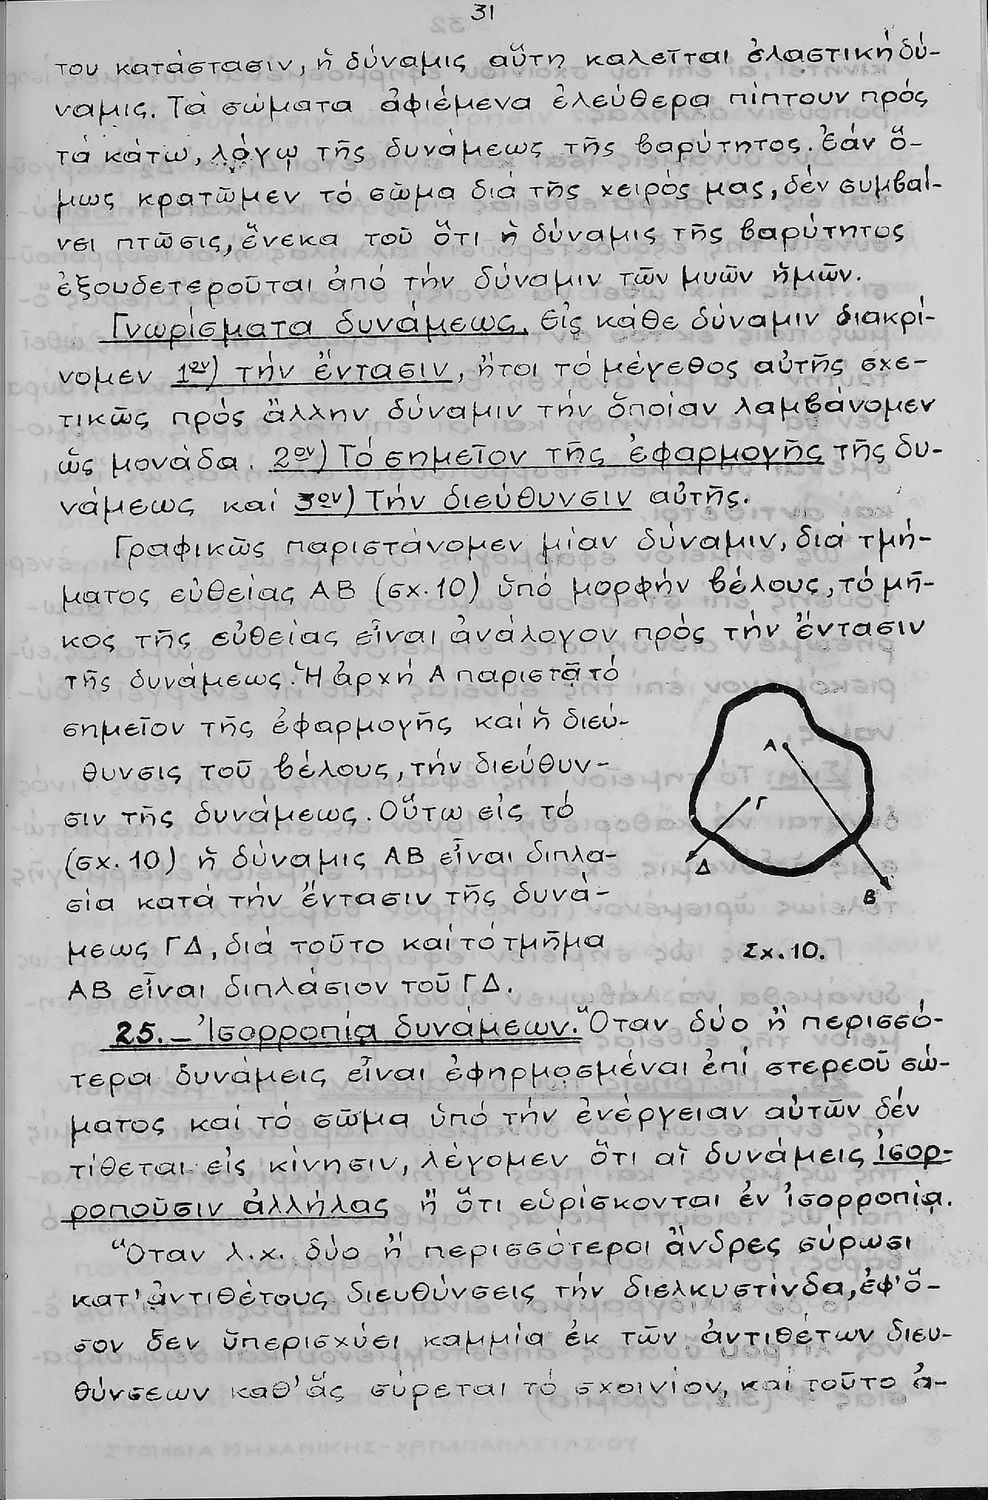 31
του κατάστασιν, ἡ δύναμις αὕτη καλεῖται ἐλαστική δύ-
ναμις. Τά σώματα ἀφιέμενα ἐλεύθερα πίπτουν πρός
τά κάτω, λόγῳ τῆς δυνάμεως τῆς βαρύτητος. Ἐάν ὅ-
μως κρατῶμεν τό σῶμα διά τῆς χειρός μας, δέν συμβαί-
νει πτῶσις, ἕνεκα τοῦ ὅτι ἡ δύναμις τῆς βαρύτητος
ἐξουδετεροῦται ἀπό τήν δύναμιν τῶν μυῶν ἡμῶν.
Γνωρίσματα δυνάμεως. Εἰς κάθε δύναμιν διακρί-
νομεν 1ον) τήν ἔντασιν, ἤτοι τό μέγεθος αὐτῆς σχε-
τικῶς πρός ἄλλην δύναμιν τήν ὁποίαν λαμβάνομεν
ὡς μονάδα. 2ον) Τό σημεῖον τῆς ἐφαρμογῆς τῆς δυ-
νάμεως καί 3ον) Τήν διεύθυνσιν αὐτῆς.
Γραφικῶς παριστάνομεν μίαν δύναμιν, διά τμή-
ματος εὐθείας ΑΒ (σχ. 10) ὑπό μορφήν βέλους, τό μῆ-
κος τῆς εὐθείας εἶναι ἀνάλογον πρός τήν ἔντασιν
τῆς δυνάμεως. Ἡ ἀρχή Α παριστᾷ τό
σημεῖον τῆς ἐφαρμογῆς καί ἡ διεύ-
θυνσις τοῦ βέλους, τήν διεύθυν-
σιν τῆς δυνάμεως. Οὕτω εἰς τό
(σχ. 10) ἡ δύναμις ΑΒ εἶναι διπλα-
σία κατά τήν ἔντασιν τῆς δυνά-
μεως ΓΔ, διά τοῦτο καί τό τμῆμα
ΑΒ εἶναι διπλάσιον τοῦ ΓΔ.
Α
Γ
Δ
Β
Σχ. 10.
25.- Ἰσορροπία δυνάμεων. Ὅταν δύο ἤ περισσό-
τεροι δυνάμεις εἶναι ἐφηρμοσμέναι ἐπί στερεοῦ σώ-
ματος καί τό σῶμα ὑπό τήν ἐνέργειαν αὐτῶν δέν
τίθεται εἰς κίνησιν, λέγομεν ὅτι αἱ δυνάμεις ἰσορ-
ροποῦσιν ἀλλήλας ἤ ὅτι εὑρίσκονται ἐν ἰσορροπίᾳ.
Ὅταν λ.χ. δύο ἤ περισσότεροι ἄνδρες σύρωσι
κατ' ἀντιθέτους διευθύνσεις τήν διελκυστίνδα, ἐφ' ὅ-
σον δεν ὑπερισχύει καμμία ἐκ τῶν ἀντιθέτων διευ-
θύνσεων καθ' ἅς σύρεται τό σχοινίον, καί τοῦτο ἀ-